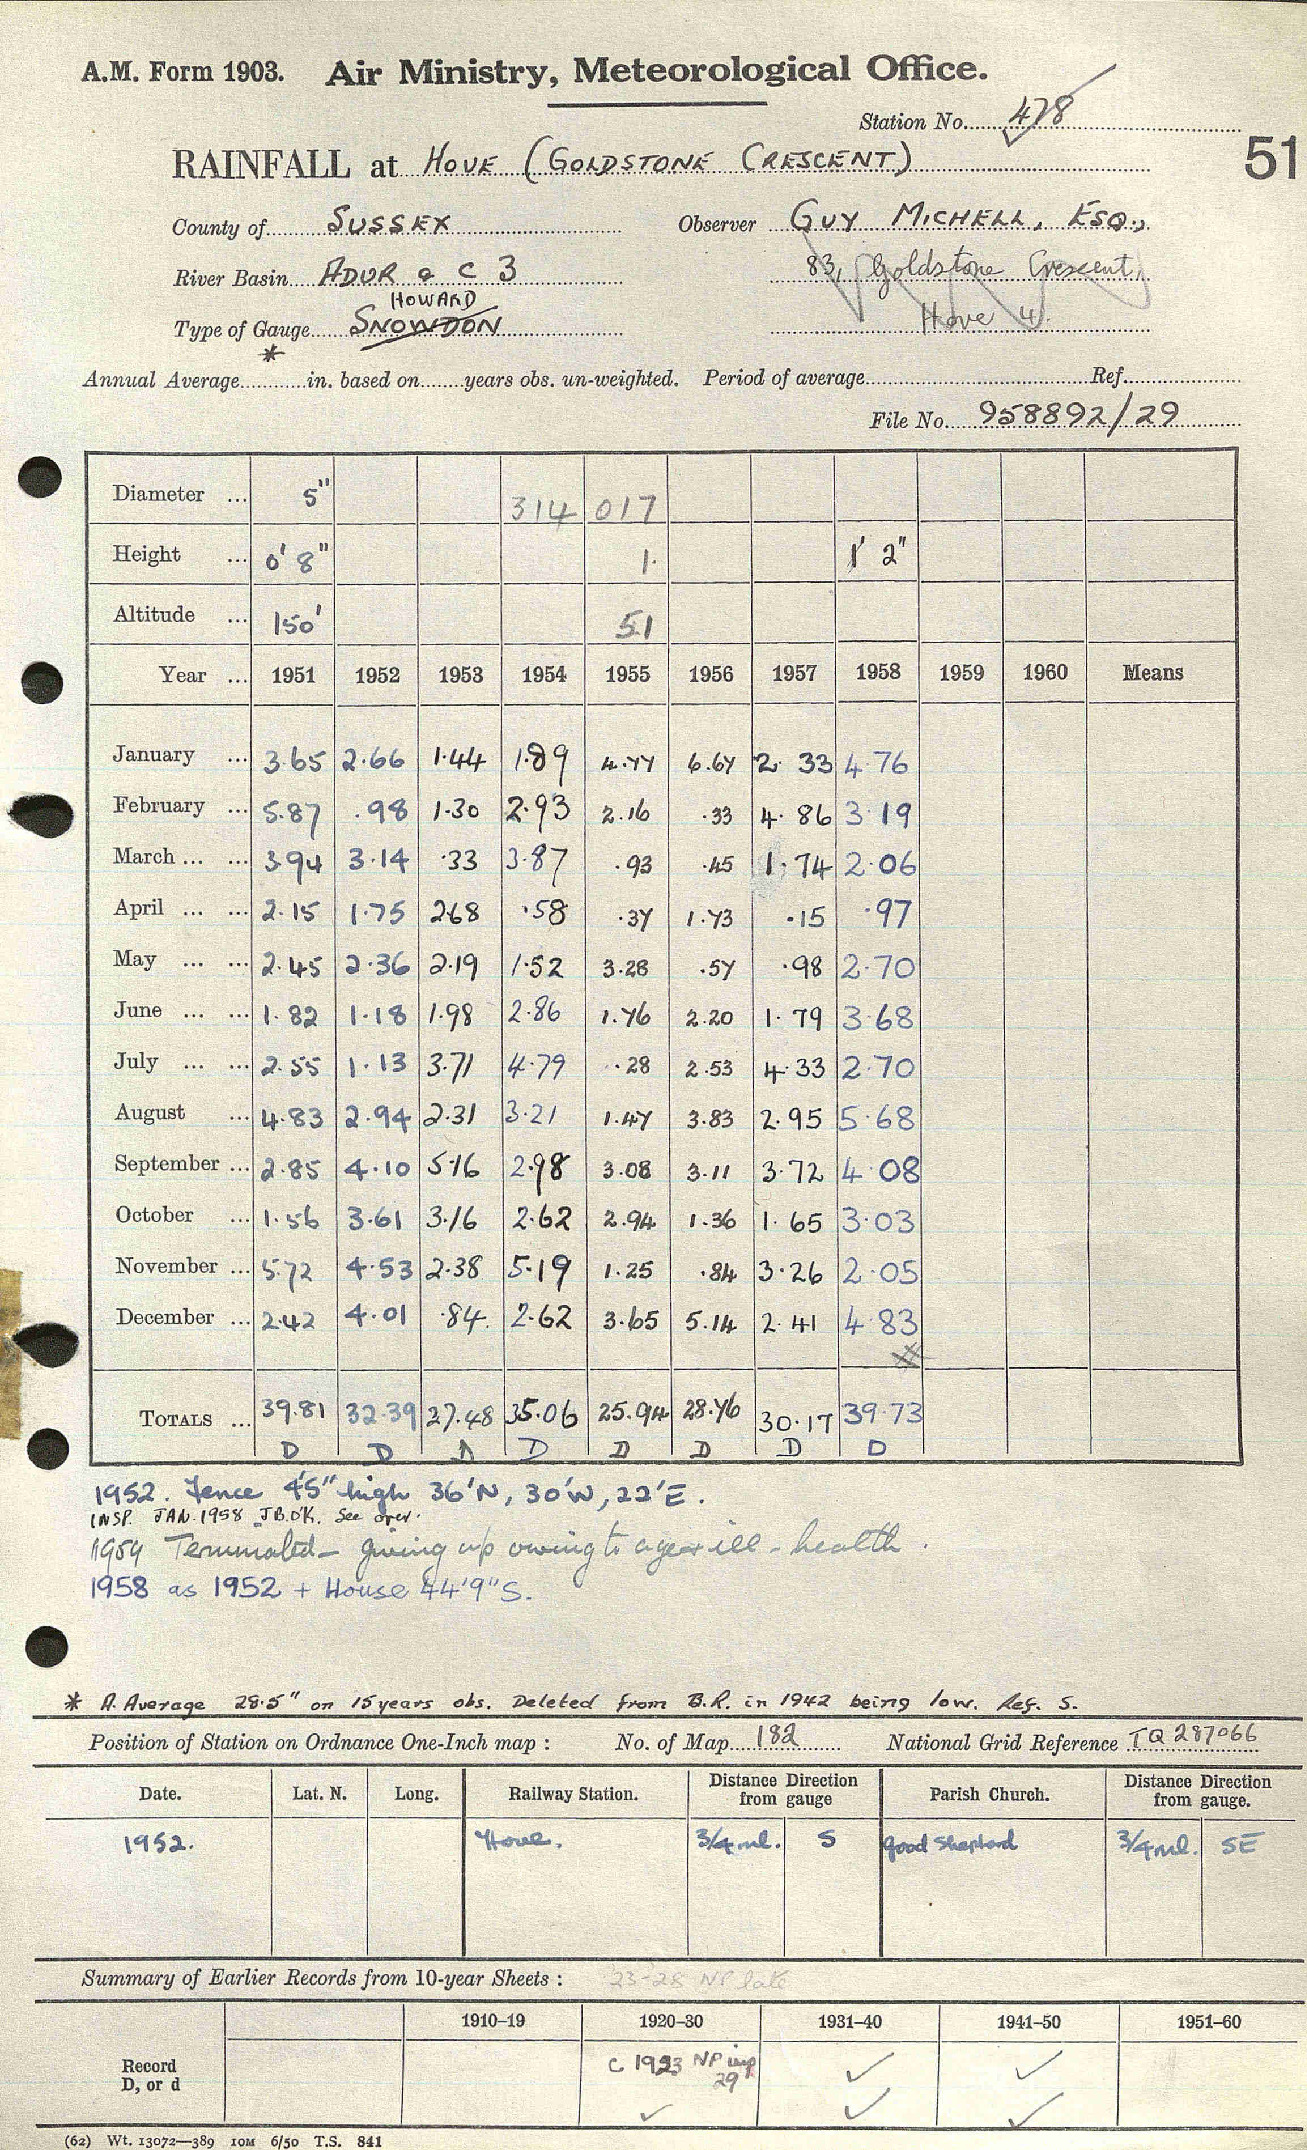 A.M. Form 1903. Air Ministry, Meteorological Office.
Station No. 478
51
RAINFALL at HOVE (GOLDSTONE CRESCENT)
County of SUSSEX Observer GUY MICHELL, ESQ.,
River Basin ADUR & C 3 83, Goldstone Crescent,
HOWARD
Type of Gauge SNOWDON Hove 4.
*
Annual Average in. based on years obs. un-weighted. Period of average Ref.
File No. 958892/29
Diameter ... 5" 314 017
Height ... 0' 8" 1. 1' 2"
Altitude ... 150' 51
Year ... 1951 1952 1953 1954 1955 1956 1957 1958 1959 1960 Means
January ... 3.65 2.66 1.44 1.89 4.77 6.67 2.33 4.76
February ... 5.87 .98 1.30 2.93 2.16 .33 4.86 3.19
March ... ... 3.94 3.14 .33 3.87 .93 .45 1.74 2.06
April ... ... 2.15 1.75 2.68 .58 .37 1.73 .15 .97
May ... ... 2.45 2.36 2.19 1.52 3.28 .57 .98 2.70
June ... ... 1.82 1.18 1.98 2.86 1.76 2.20 1.79 3.68
July ... ... 2.55 1.13 3.71 4.79 .28 2.53 4.33 2.70
August ... 4.83 2.94 2.31 3.21 1.47 3.83 2.95 5.68
September ... 2.85 4.10 5.16 2.98 3.08 3.11 3.72 4.08
October ... 1.56 3.61 3.16 2.62 2.94 1.36 1.65 3.03
November ... 5.72 4.53 2.38 5.19 1.25 .84 3.26 2.05
December ... 2.42 4.01 .84 2.62 3.65 5.14 2.41 4.83
TOTALS ... 39.81 32.39 27.48 35.06 25.94 28.76 30.17 39.73
D D D D D D D D
1952. Fence 4'5" high 36'N, 30'W, 22'E.
INSP. JAN. 1958 J.B.O'K. See over.
1959 Terminated - giving up owing to age & ill-health.
1958 as 1952 + House 44'9"S.
* A. Average 28.5" on 15 years obs. Deleted from B.R. in 1942 being low. Ref. S.
Position of Station on Ordnance One-Inch map : No. of Map 182 National Grid Reference TQ 287066
Date. Lat. N. Long. Railway Station. Distance Direction from gauge Parish Church. Distance Direction from gauge.
1952. Hove. 3/4 ml. S Good Shepherd 3/4 ml. SE
Summary of Earlier Records from 10-year Sheets : 23-28 NP late
1910–19 1920–30 1931–40 1941–50 1951–60
Record D, or d C 1923 NP 29
(62) Wt. 13072—389 10M 6/50 T.S. 841